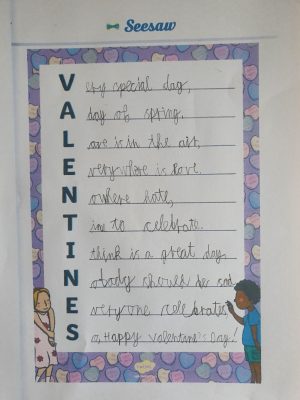 Seesaw
Very special day,
A day of spring.
Love is in the air,
Everywhere is love.
Nowhere hate,
Time to celebrate.
I think is a great day,
Nobody should be sad
Everyone celebrates
So, Happy Valentine's Day!